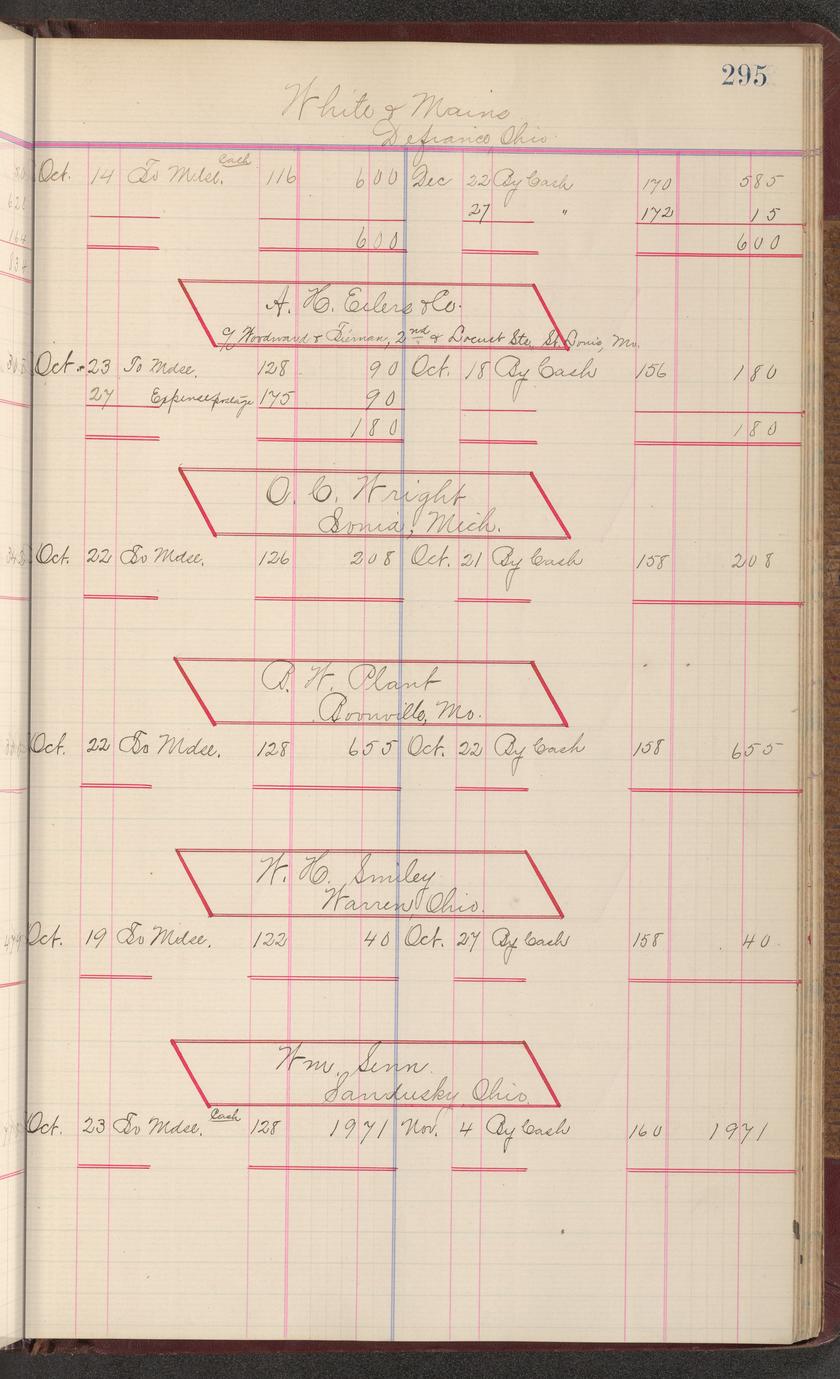 295
White & Mains
Defiance, Ohio.
Oct. 14 To Mdse. Cash 116 600 Dec 22 By Cash 170 585
27 " 172 15
600 600
A. H. Eilers & Co.
c/o Woodward & Tiernan, 2nd & Locust Sts, St. Louis, Mo.
Oct. 23 To Mdse. 128 90 Oct. 18 By Cash 156 180
27 Expense postage 175 90
180 180
O. C. Wright
Ionia, Mich.
Oct. 22 To Mdse. 126 208 Oct. 21 By Cash 158 208
B. W. Plant
Boonville, Mo.
Oct. 22 To Mdse. 128 655 Oct. 22 By Cash 158 655
W. H. Smiley
Warren, Ohio.
Oct. 19 To Mdse. 122 40 Oct. 27 By Cash 158 40
Wm. Senn
Sandusky, Ohio.
Oct. 23 To Mdse. Cash 128 1971 Nov. 4 By Cash 160 1971